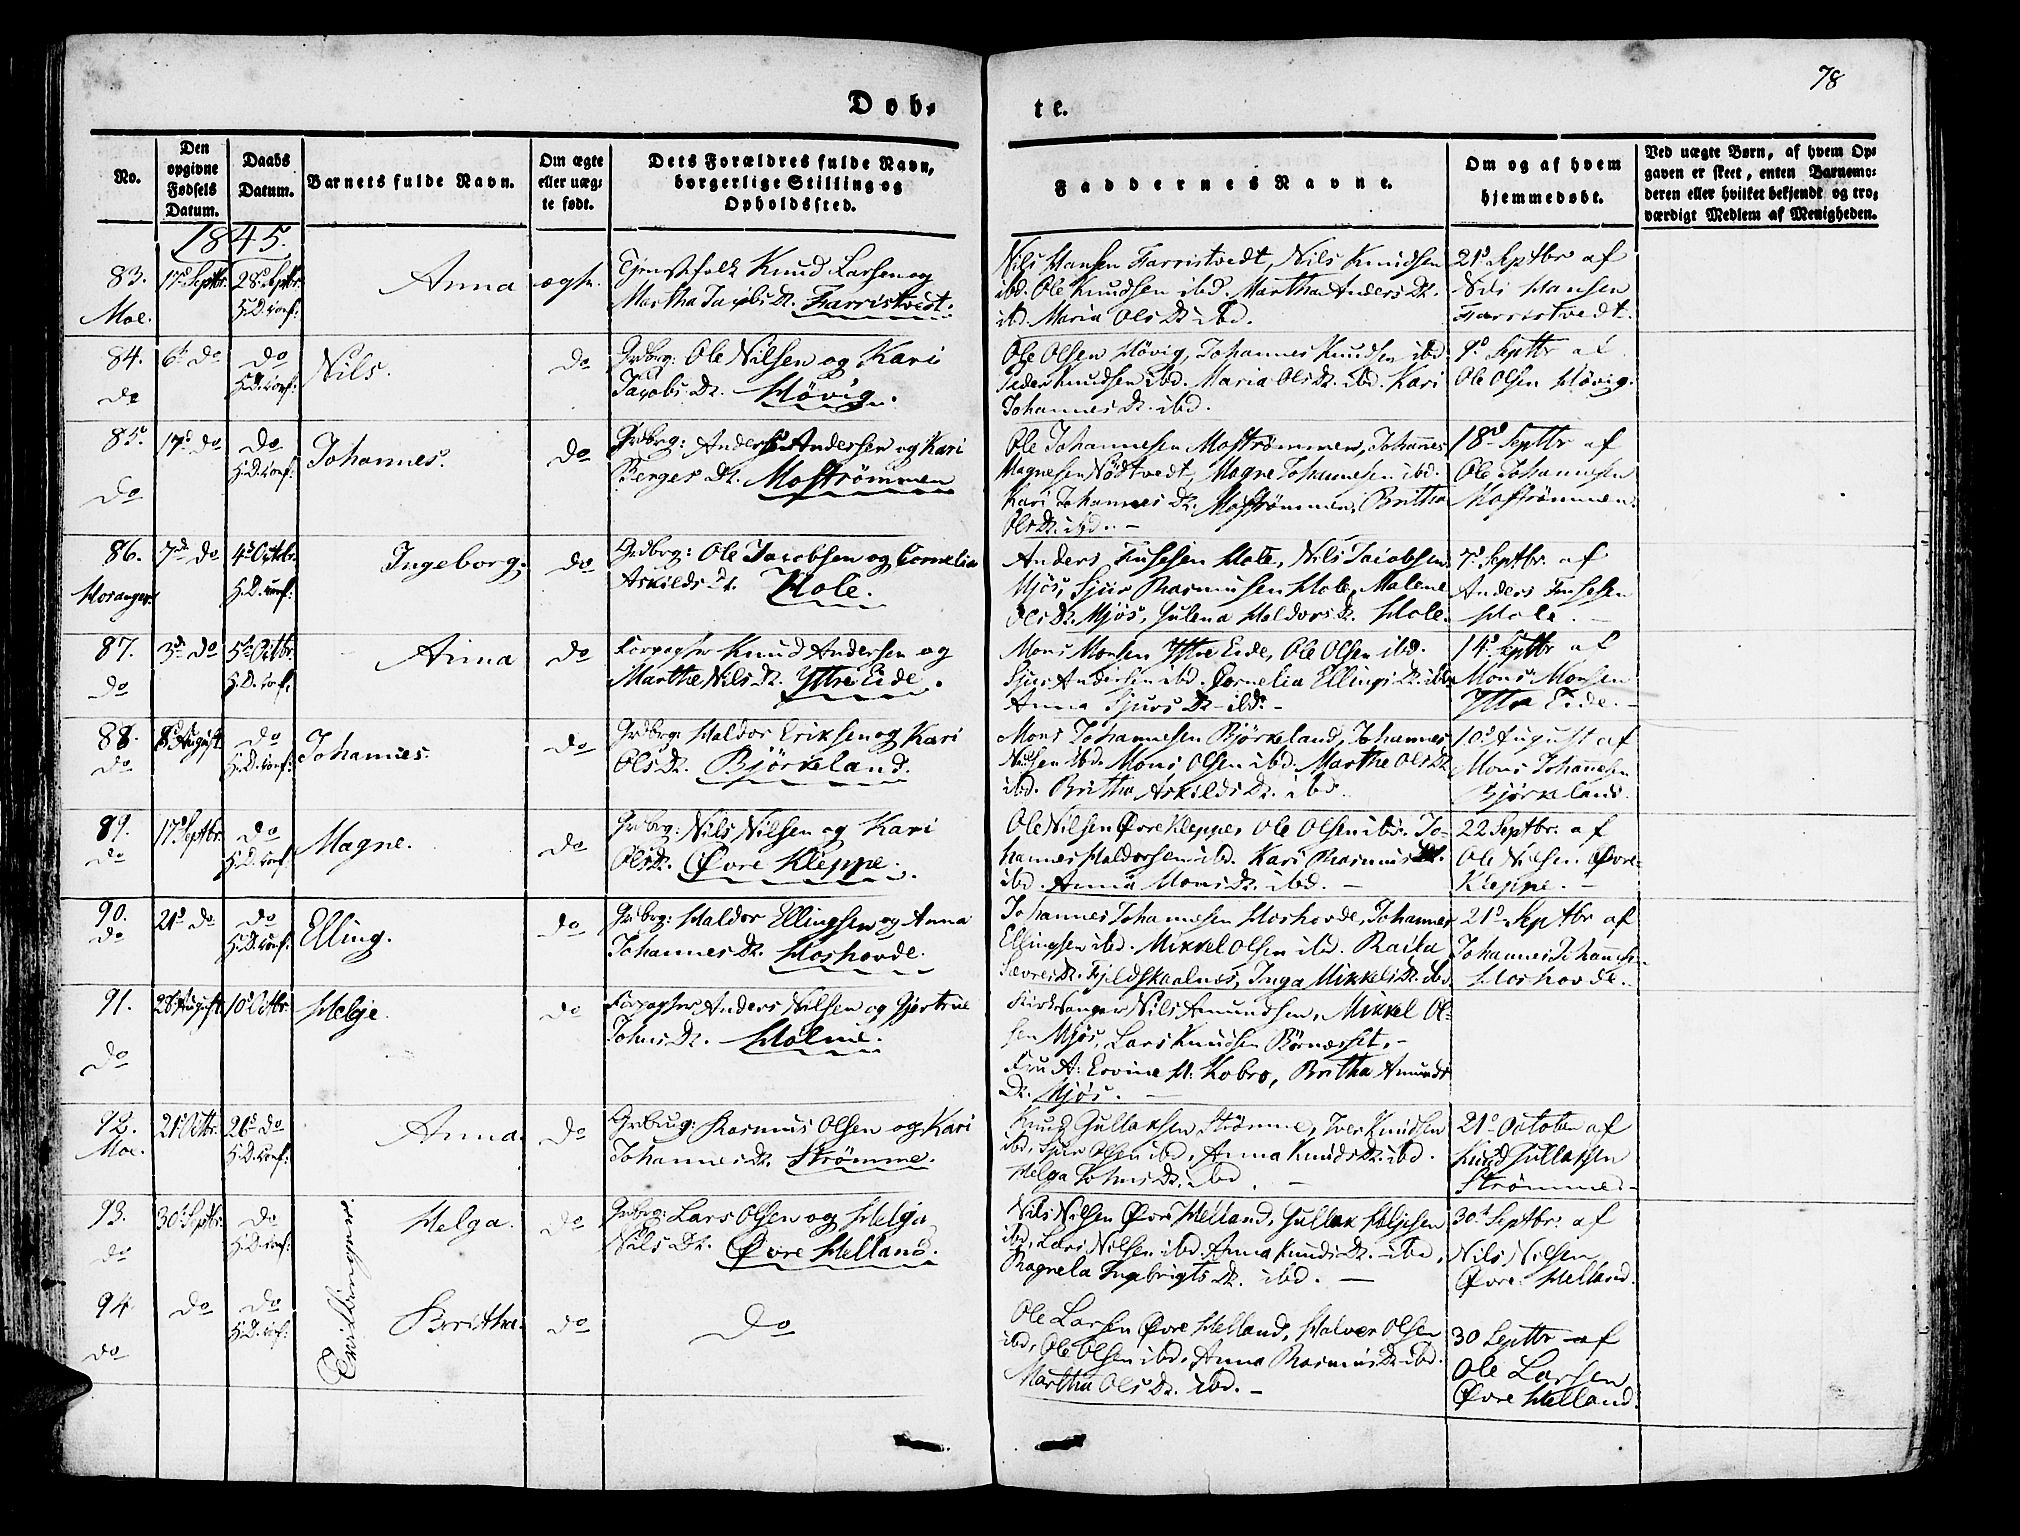 78
Døb=
te.
No.
Den
opgivne
Fødsels
Datum.
Daabs
Datum.
Barnets fulde Navn.
Om ægte
eller uæg=
te født.
Dets Forældres fulde Navn,
borgerlige Stilling og
Opholdssted.
Faddernes Navne.
Om og af hvem
hjemmedøbt.
Ved uægte Børn, af hvem Op=
gaven er skeet, enten Barnemo=
deren eller hvilket bekjendt og tro=
værdigt Medlem af Menigheden.
1845.
83.
Moe.
17d Septbr.
28d Septbr.
H.D. conf:
Anna
ægte.
Ejerstfolk Knud Larsen og
Martha Jacobs Dr. Farristvedt.
Nils Hansen Farristvedt, Nils Knudsen
ibd. Ole Knudsen ibd. Martha Anders Dr.
ibd. Maria Ols Dr. ibd.
21d Septbr af
Nils Hansen
Farristvedt.
84.
do
6d do
do
H.D. conf:
Nils.
do
Grdbrg: Ole Nilsen og Kari
Jacobs Dr. Høvig.
Ole Olsen Høvig, Johannes Knudsen ibd.
Peder Knudsen ibd. Maria Ols Dr. ibd. Kari
Johannes Dr. ibd.
9d Septbr af
Ole Olsen Høvig.
85.
do
17d do
do
H.D. conf:
Johannes.
do
Grdbrg: Anders Andersen og Kari
Berges Dr. Mostrømmen
Ole Johannesen Mostrømmen, Johannes
Magnesen Nødtvedt, Magne Johannesen ibd.
Kari Johannes Dr. Mostrømmen, Britha
Ols Dr. ibd. -
18d Septbr af
Ole Johannesen
Mostrømmen.
86.
Hosanger.
7de do
4d Octbr.
H.D. conf:
Ingeborg.
do
Grdbrg: Ole Jacobsen og Cornelia
Askilds Dr. Hole.
Anders Hole, Nils Jacobsen
Mjøs, Sjur Rasmusen Hole, Malene
Ols Dr. Mjøs, Julena Haldors Dr. Hole.
7d Septbr. af
Anders
Hole. -
87.
do
3d do
5te Octbr.
H.D. conf:
Anna
do
Forpagter Knud Andersen og
Marthe Nils Dr. Yttre Eide.
Mons Monsen Yttre Eide, Ole Olsen ibd.
Sjur Andersen ibd. Cornelia Ellings Dr. ibd.
Anna Sjurs Dr. ibd. -
14d Septbr af
Mons Monsen
Yttre Eide. -
88.
do
8d August.
do
H.D. conf:
Johannes.
do
Grdbrg: Haldor Eriksen og Kari
Ols Dr. Bjørkeland.
Mons Johannesen Bjørkeland, Johannes
Nilsen ibd. Mons Olsen ibd. Marthe Ols Dr.
ibd. Britha Askilds Dr. ibd.
10d August af
Mons Johannesen
Bjørkeland.
89.
do
17d Septbr.
do
H.D. conf
Magne.
do
Grdbrg: Nils Nilsen og Kari
Ols Dr. Øvre Kleppe.
Ole Nilsen Øvre Kleppe, Ole Olsen ibd. Jo-
hannes Haldorsen ibd. Kari Rasmus Dr.
ibd. Anna Mons Dr. ibd. -
22 Septbr. af
Ole Nilsen Øvre
Kleppe. -
90.
do
21d do
do
H.D. conf:
Elling.
do
Grdbrg: Haldor Ellingsen og Anna
Johannes Dr. Hoshovde.
Johannes Johannesen Hoshovde, Johannes
Ellingsen ibd. Mikkel Olsen ibd. Raila
Sævres Dr. Fjeldskaalnes, Inga Mikkels Dr. ibd.
21d Septbr af
Johannes Johannesen
Hoshovde.
91.
do
28 August.
10d Octbr.
Helje.
do
Forpagter Anders Nilsen og Gjertrue
Johns Dr. Holme.
Kirkesanger Nils Amundsen, Mikkel Ol-
sen Mjøs, Lars Knudsen Børnesset, -
Fru A: Ervine H. Kobro, Britha Amunds
Dr. Mjøs. -
92.
Moe.
21d Octbr.
26d do
H.D. conf:
Anna.
do
Grdbrug: Rasmus Olsen og Kari
Johannes Dr. Strømme.
Knud Gullaksen Strømme, Iver Knudsen
ibd, Sjur Olsen ibd, Anna Knuds Dr. ibd.
Helga Johns Dr. ibd. -
21d October af
Knud Gullaksen
Strømme. -
93.
do
30d Septbr.
do
H.D. conf:
Tvillingpiger
Helga.
do
Grdbrg: Lars Olsen og Helga
Nils Dr. Øvre Helland.
Nils Nilsen Øvre Helland, Gullak Heljesen
ibd, Lars Nilsen ibd. Anna Knuds Dr. ibd,
Ragnela Ingebrigts Dr. ibd. -
30d Septbr. af
Nils Nilsen
Øvre Helland.
94
do
do
do
H.D. conf:
Britha.
do
do
Ole Larsen Øvre Helland, Halvor Olsen
ibd, Ole Olsen ibd, Anna Rasmus Dr. ibd.
Martha Ols Dr. ibd. -
30 Septbr af
Ole Larsen
Øvre Helland.